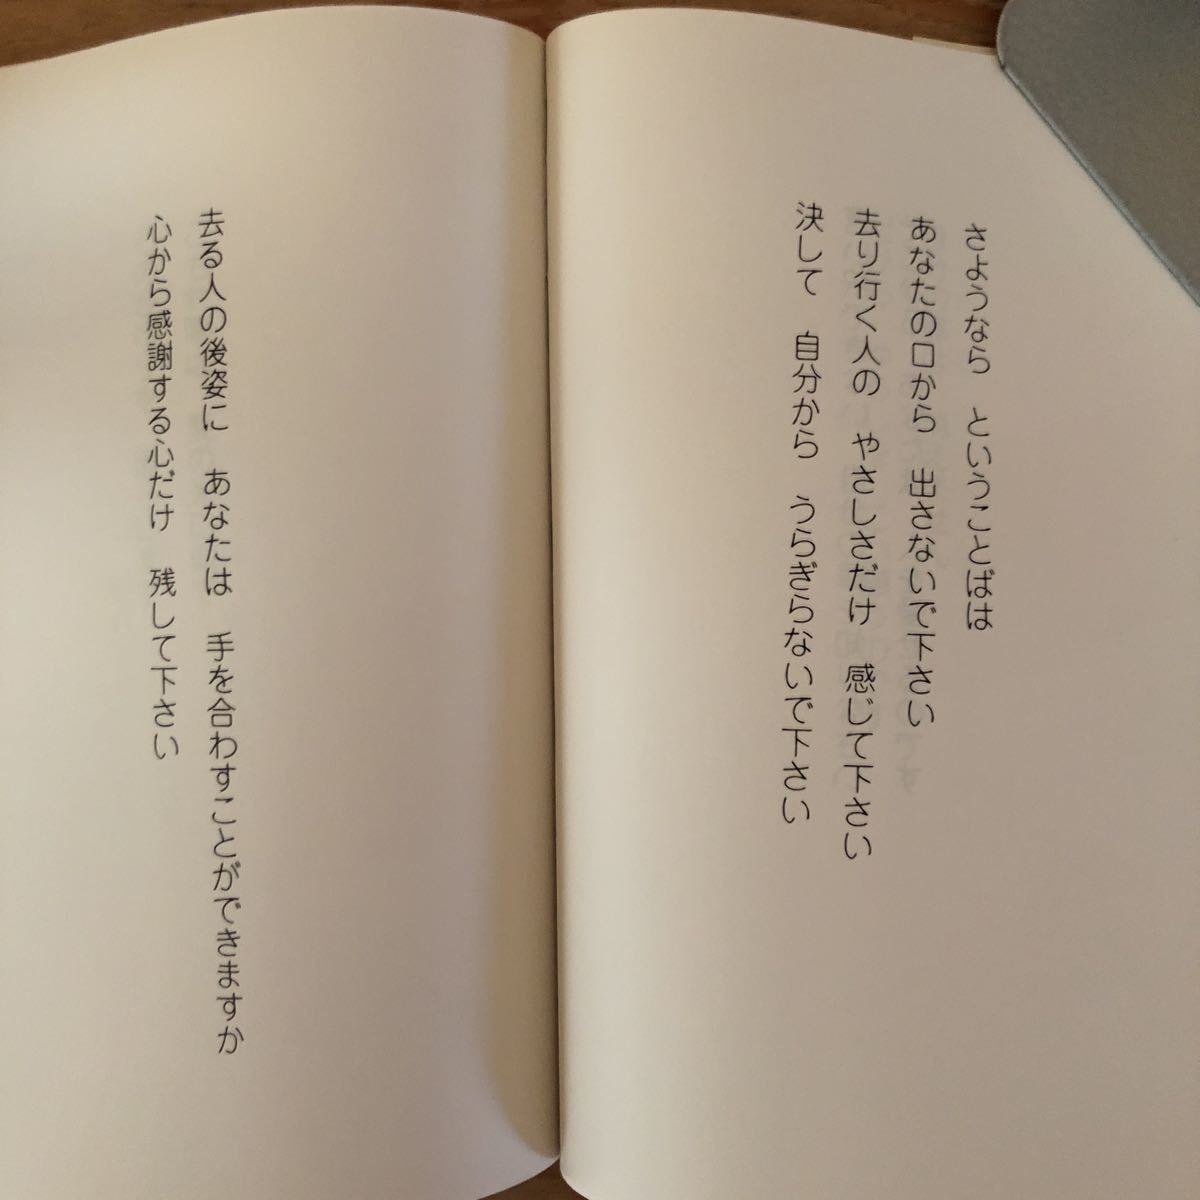 さようなら　ということばは
あなたの口から　出さないで下さい
去り行く人の　やさしさだけ　感じて下さい
決して　自分から　うらぎらないで下さい
去る人の後姿に　あなたは　手を合わすことができますか
心から感謝する心だけ　残して下さい